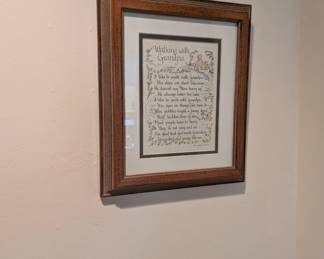 Walking with
Grandpa
I like to walk with grandpa
His steps are short like mine.
He doesn't say "Now hurry up"
He always takes his time.
I like to walk with grandpa
His eyes see things like mine do
Most people have to hurry
They do not stop and see
I'm glad that God made grandpa